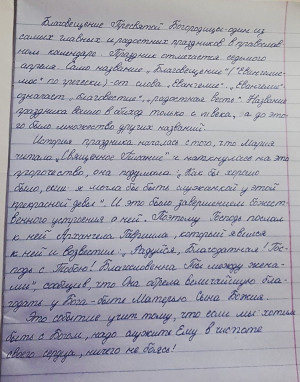 Благовещение Пресвятой Богородицы-один из
самых главных и радостных праздников в православ
ном календаре. Праздник отмечается седьмого
апреля. Само название „Благовещение" ("Евангелис-
мос" по гречески) - от слова „Евангелие". „Евангелие"-
означает „благовестие", „радостная весть". Название
праздника вошло в обиход только с века, а до это-
го было множество других названий.
История праздника началась с того, что Мария
читала „Священное Писание" и наткнулась на это
пророчество, она подумала: „Как бы хорошо
было, если я могла бы быть служанкой у этой
прекрасной девы". И это было завершением божест-
венного устроения о ней. Поэтому Господь послал
к ней Архангела Гавриила, который явился
к ней и возвестил: „Радуйся, Благодатная! Гос-
подь с Тобою! Благословенна Ты между жена-
ми", сообщив, что Она обрела величайшую благо-
дать у Бога - быть Матерью Сына Божия.
Это событие учит тому, что если мы хотим
быть с Богом, надо служить Ему в чистоте
своего сердца, ничего не боясь!